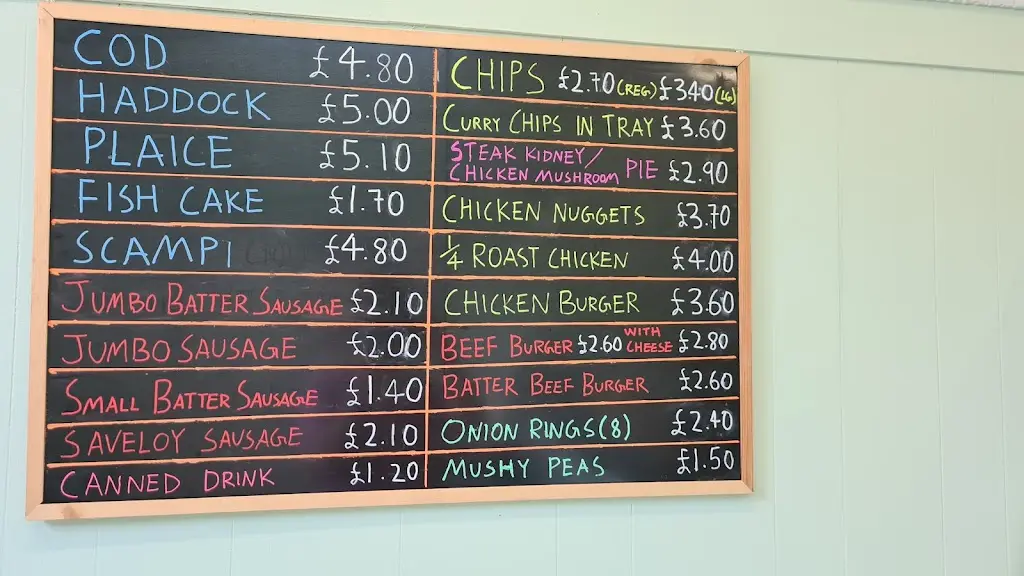 COD £4.80
HADDOCK £5.00
PLAICE £5.10
FISH CAKE £1.70
SCAMPI £4.80
JUMBO BATTER SAUSAGE £2.10
JUMBO SAUSAGE £2.00
SMALL BATTER SAUSAGE £1.40
SAVELOY SAUSAGE £2.10
CANNED DRINK £1.20
CHIPS £2.70 (REG) £3.40 (LG)
CURRY CHIPS IN TRAY £3.60
STEAK KIDNEY/
CHICKEN MUSHROOM PIE £2.90
CHICKEN NUGGETS £3.70
1/4 ROAST CHICKEN £4.00
CHICKEN BURGER £3.60
BEEF BURGER £2.60 WITH CHEESE £2.80
BATTER BEEF BURGER £2.60
ONION RINGS (8) £2.40
MUSHY PEAS £1.50